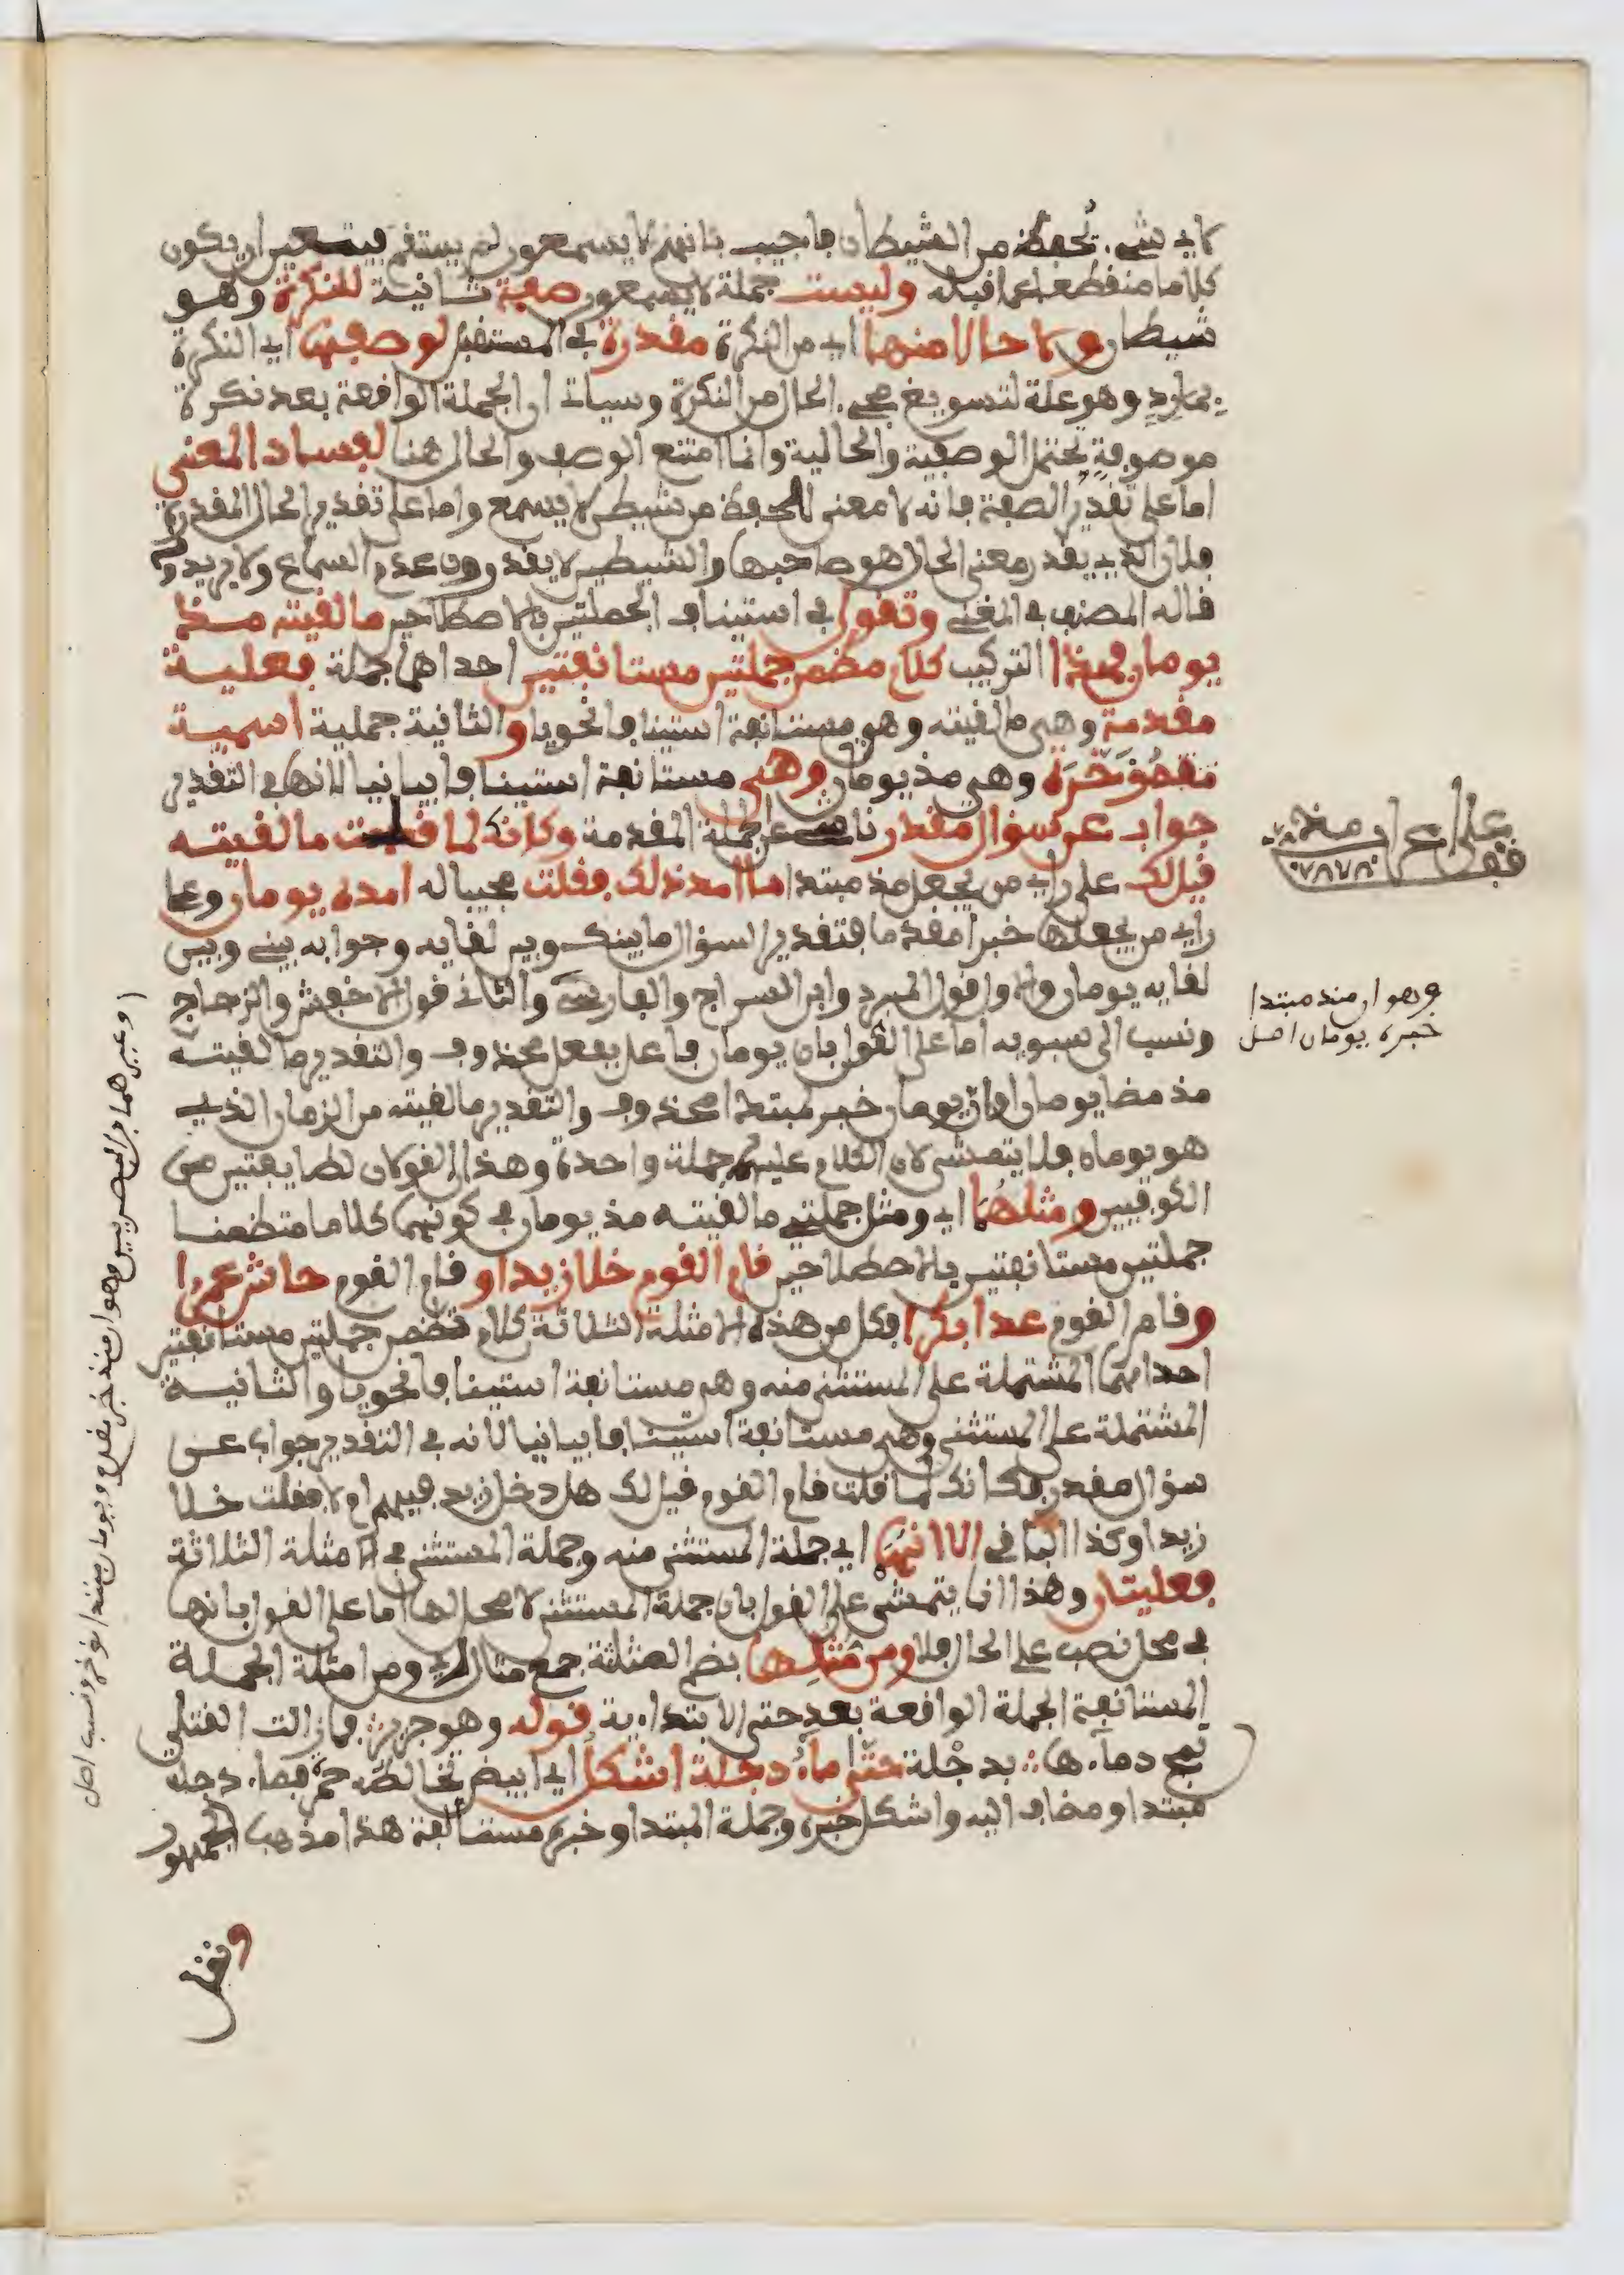 لاي شيء تحفظ من الشيطان فاجيب بانهم لا يسمعون لم يستقم فيتعين ان يكون
كلاما منقطعا عما قبله وليست جملة لا يسمعون صفة ثانية للنكرة وهو
شيطان ولا حالا منها اي من النكرة مقدرة في المستقبل لوصفها اي النكرة
بمارد وهو علة لتسويغ مجيء الحال من النكرة وسياتي ان الجملة الواقعة بعد نكرة
موصوفة تحتمل الوصفية والحالية وانما امتنع الوصف والحال هنا لفساد المعنى
اما على تقدير الصفة فانه لا معنى للحفظ من شيطن لا يسمع واما على تقدير الحال المقدرة
فلان الذي يقدر معنى الحال هو صاحبها والشيطين لا يقدرون عدم السماع ولا يريدونه
قاله المصنف في المغني وتقول في استيناف الجملتين بالاصطلاحين ما لقيته مذ
يومان فهذا التركيب كلام تضمن جملتين مستانفتين احداهما جملة فعلية
مقدمة وهي ما لقيته وهو مستانفة استينافا نحويا والثانية جملية اسمية
مؤخرة وهي مذ يومان وهي مستانفة استينافا بيانيا لانها في التقدير
جواب عن سؤال مقدر ناشئ عن جملة المقدمة وكانه لما قلت ما لقيته
قيل لك على راي من يجعل مذ مبتدا ما امد ذلك فقلت مجيبا له امده يومان وعلى
راي من يجعلها خبرا مقدما فتقدير السؤال ما بينك وبين لقايه وجوابه بيني وبين
لقايه يومان والاول قول المبرد وابن السراج والفارسي والثاني قول الاخفش والزجاج
ونسب الى سبويه اما على القول بان يومان فاعل بفعل محذوف والتقدير ما لقيته
مذ مضا يومان او ان يومان خبر لمبتدا محذوف والتقدير ما لقيته من الزمان الذي
هو يومان فلا يتمشى لان الكلام عليهما جملة واحدة وهذان القولان لطايفتين من
الكوفيين ومثلهما اي ومثل جملتي ما لقيته مذ يومان في كونهما كلاما متضمنا
جملتين مستانفتين بالاصطلاحين قام القوم خلا زيدا و قام القوم حاش عمرا
وقام القوم عدا بكرا فكل من هذه الامثلة الثلاثة كلام تضمن جملتين مستانفتين
احداهما المشتملة على المستثنى منه وهي مستانفة استينافا نحويا والثانية
المشتملة على المستثنى وهي مستانفة استينافا بيانيا لانه في التقدير جواب عن
سؤال مقدر فكانك لما قلت قام القوم قيل لك هل دخل زيد فيهم ام لا فقلت خلا
زيدا وكذا الباقي الا انهما اي جملة المستثنى منه وجملة المستثنى في الامثلة الثلاثة
فعليتان وهذا انما يتمشى على القول بان جملة المستثنى لا محل لها اما على القول بانها
في محل نصب على الحال فلا ومن مثلها بضم المثلثة جمع مثال اي ومن امثلة الجملة
المستانفة الجملة الواقعة بعد حتى الابتداءية قوله وهو جرير فما زالت القتلى
تمج دماءها بدجلة حتى ماء دجلة اشكل اي ابيض تخالطه حمرة فماء دجلة
مبتدا ومضاف اليه واشكل خبره وجملة المبتدا وخبره مستانفة هذا مذهب الجمهور
ونقل
فقل
وهو ان منذ مبتدا
خبره يومان اصل
وغيرهما من البصريين وهو ان منذ خبر مقدم ويومان مبتدا مؤخر ونسب اصل